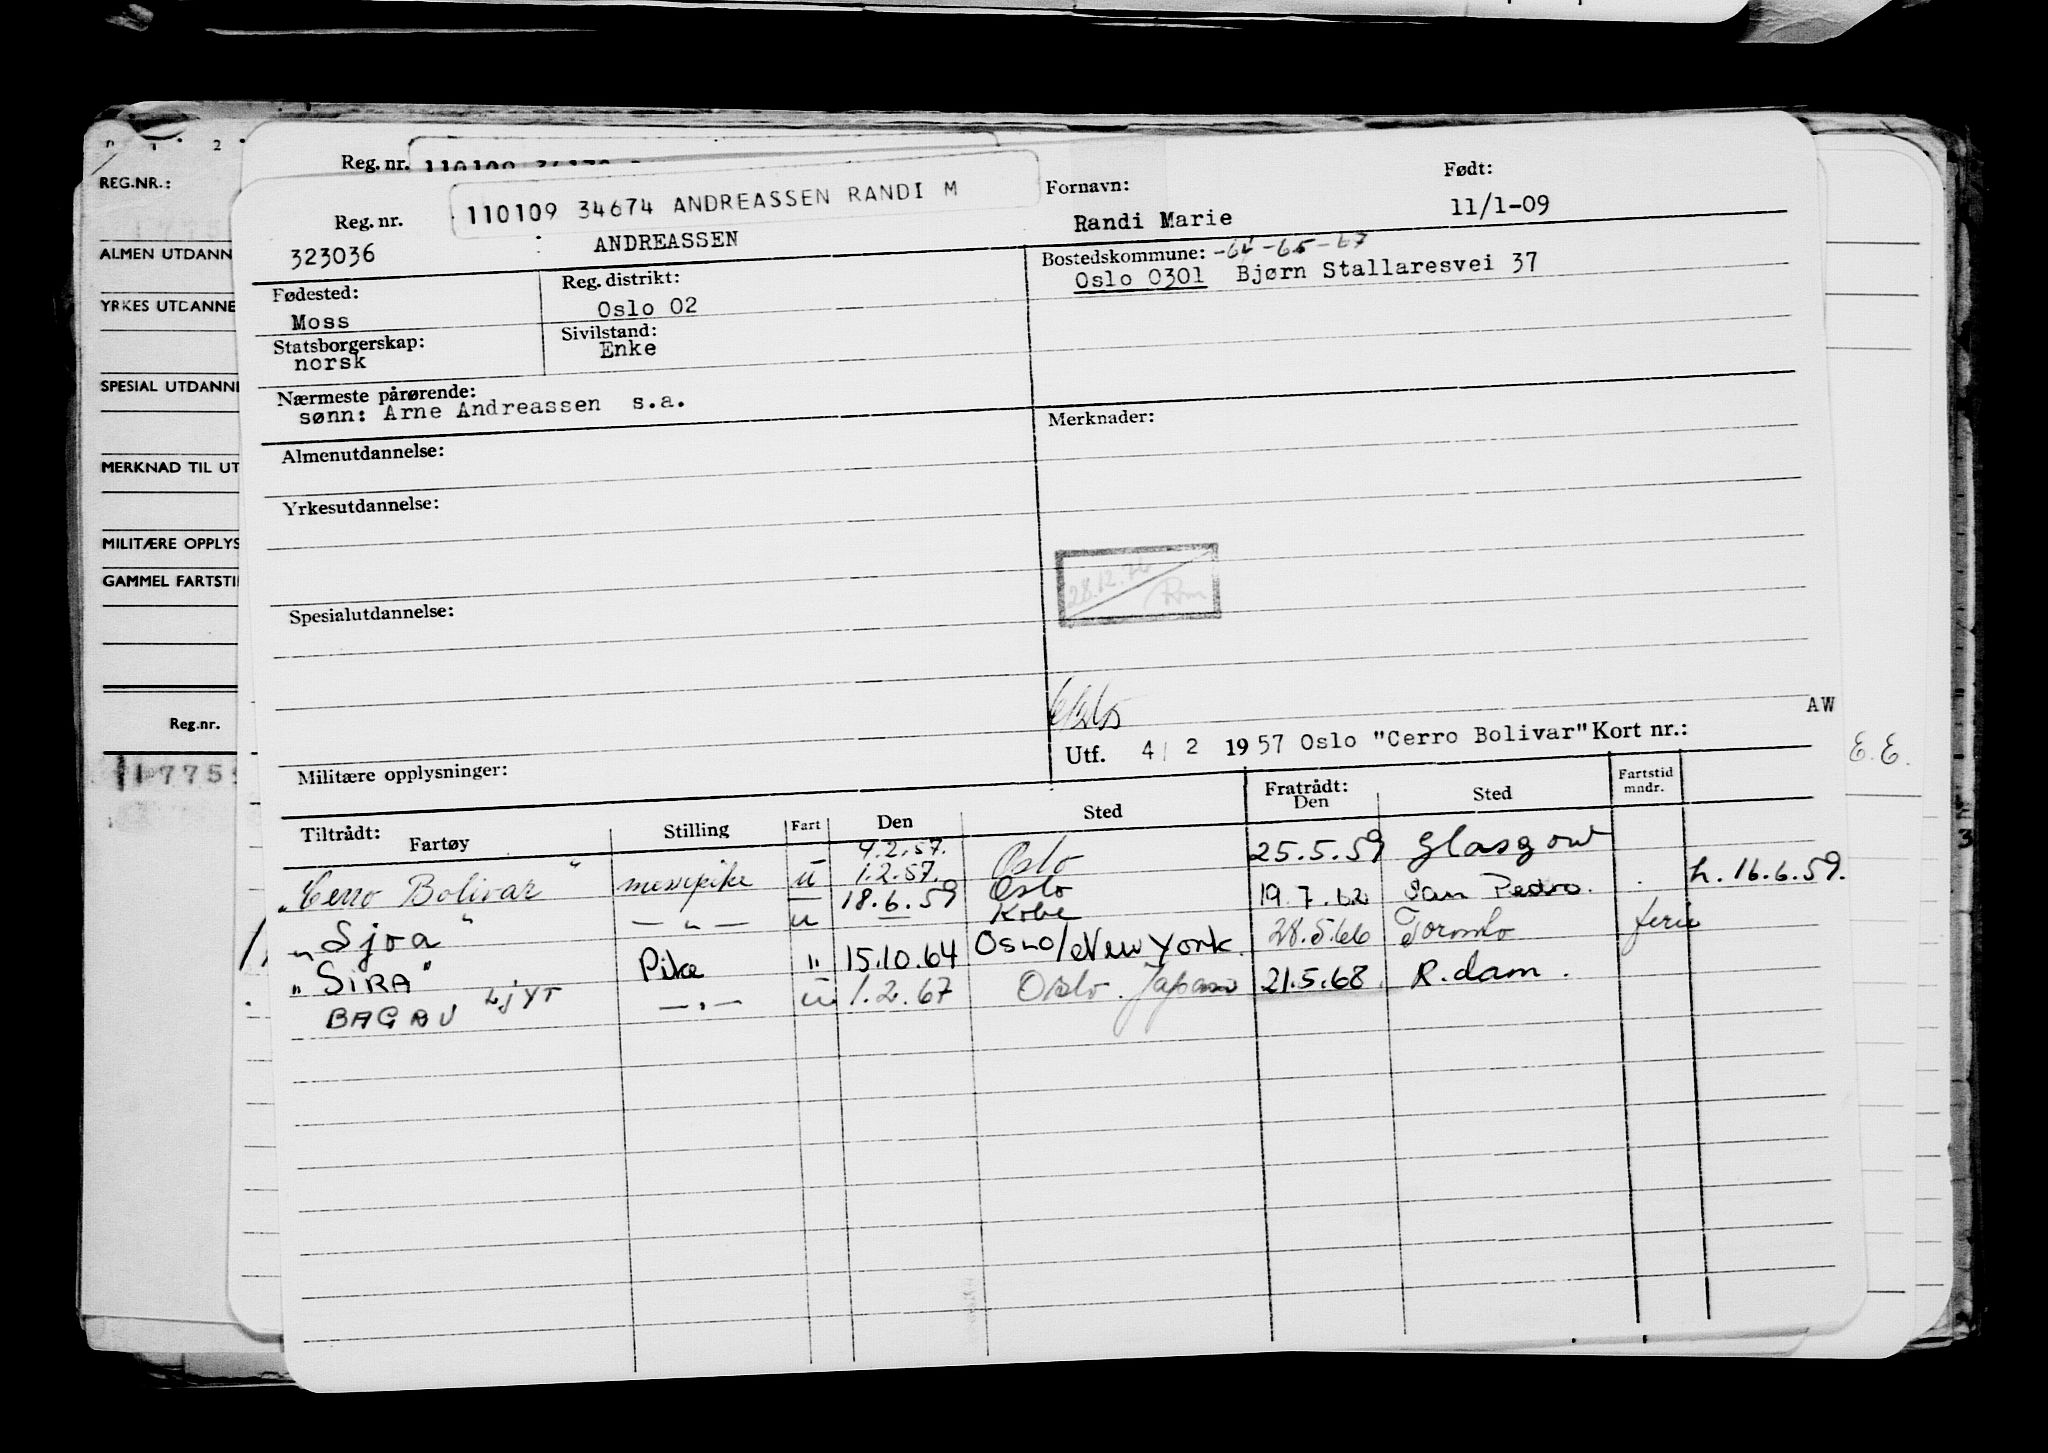 REG.NR.:
ALMEN UTDANN
YRKES UTDANNE
SPESIAL UTDANNE
MERKNAD TIL UT
MILITÆRE OPPLYS
GAMMEL FARTSTI
Reg.nr.
1775
Reg. nr.
Reg. nr. 110109 34674 ANDREASSEN RANDI M
Fornavn: Født:
323036 ANDREASSEN Randi Marie 11/1-09
Fødested: Reg. distrikt: Bostedskommune: -64-65-67
Moss Oslo 02 Oslo 0301 Bjørn Stallaresvei 37
Statsborgerskap: Sivilstand:
norsk Enke
Nærmeste pårørende:
sønn: Arne Andreassen s.a.
Merknader:
Almenutdannelse:
Yrkesutdannelse:
28.12.76
Spesialutdannelse:
AW
Utf. 4/2 1957 Oslo "Cerro Bolivar" Kort nr.:
Militære opplysninger:
Tiltrådt: Fartøy Stilling Fart Den Sted Fratrådt: Den Sted Fartstid mndr.
4.2.57.
"Cerro Bolivar" messepike u 1.2.57. Oslo 25.5.59 Glasgow
"Sjoa" — " — u 18.6.59 Oslo Kobe 19.7.62 San Pedro. h. 16.6.59.
"SIRA" Pike " 15.10.64 Oslo/New York. 28.5.66 Toronto ferie
BAGAU LjYT — " — u 1.2.67 Oslo. Japan 21.5.68 R.dam.
E.E.
3